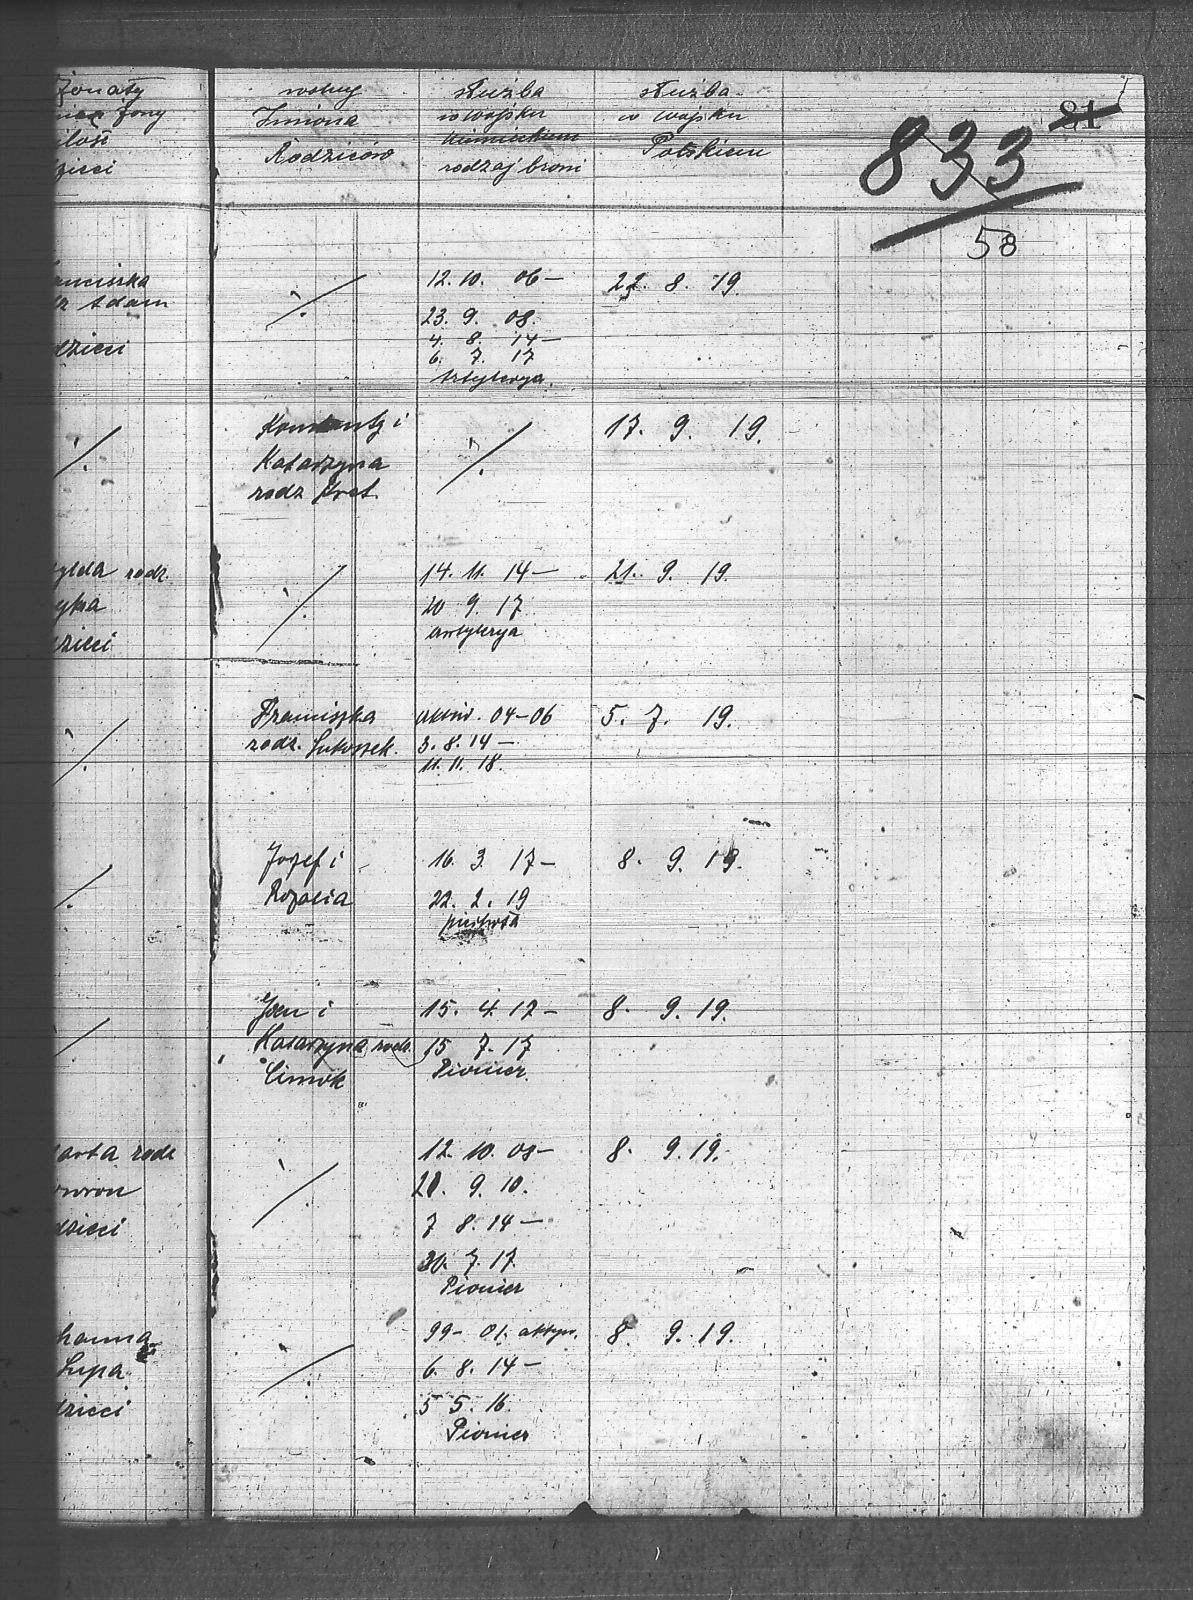 żonaty
żony
ilość
dzieci
wolny
Imiona
Rodziców
służba
w wojsku
niemieckiem
rodzaj broni
służba
w wojsku
Polskiem
81
833
58
anciszka
dz Adam
dzieci
12. 10. 06 —
23. 9. 08.
4. 8. 14 —
6. 7. 17
Artylerya.
22. 8. 19.
i
Katarzyna
rodz Kret.
17. 9. 19.
ylda rodz.
yka
dzieci
14. 11. 14 —
20 9. 17
artylerya
21. 9. 19.
Franciszka
rodz.
04-06
3. 8. 14 —
11. 11. 18.
5. 7. 19.
Jozef i
Rozalia
16. 3. 17 —
22. 2. 19
piechota
8. 9. 19.
Jan i
Katarzyna rodz.
Cimok
15. 4. 17 —
15 7. 17
Pionier.
8. 9. 19.
arta rodz
owron
dzieci
12. 10. 08 —
9. 10.
7 8. 14 —
30. 7. 17.
Pionier
8. 9. 19.
hanna
Lupa
dzieci
99 - 01. aktyw.
6. 8. 14 —
5 5. 16.
Pionier
8. 9. 19.